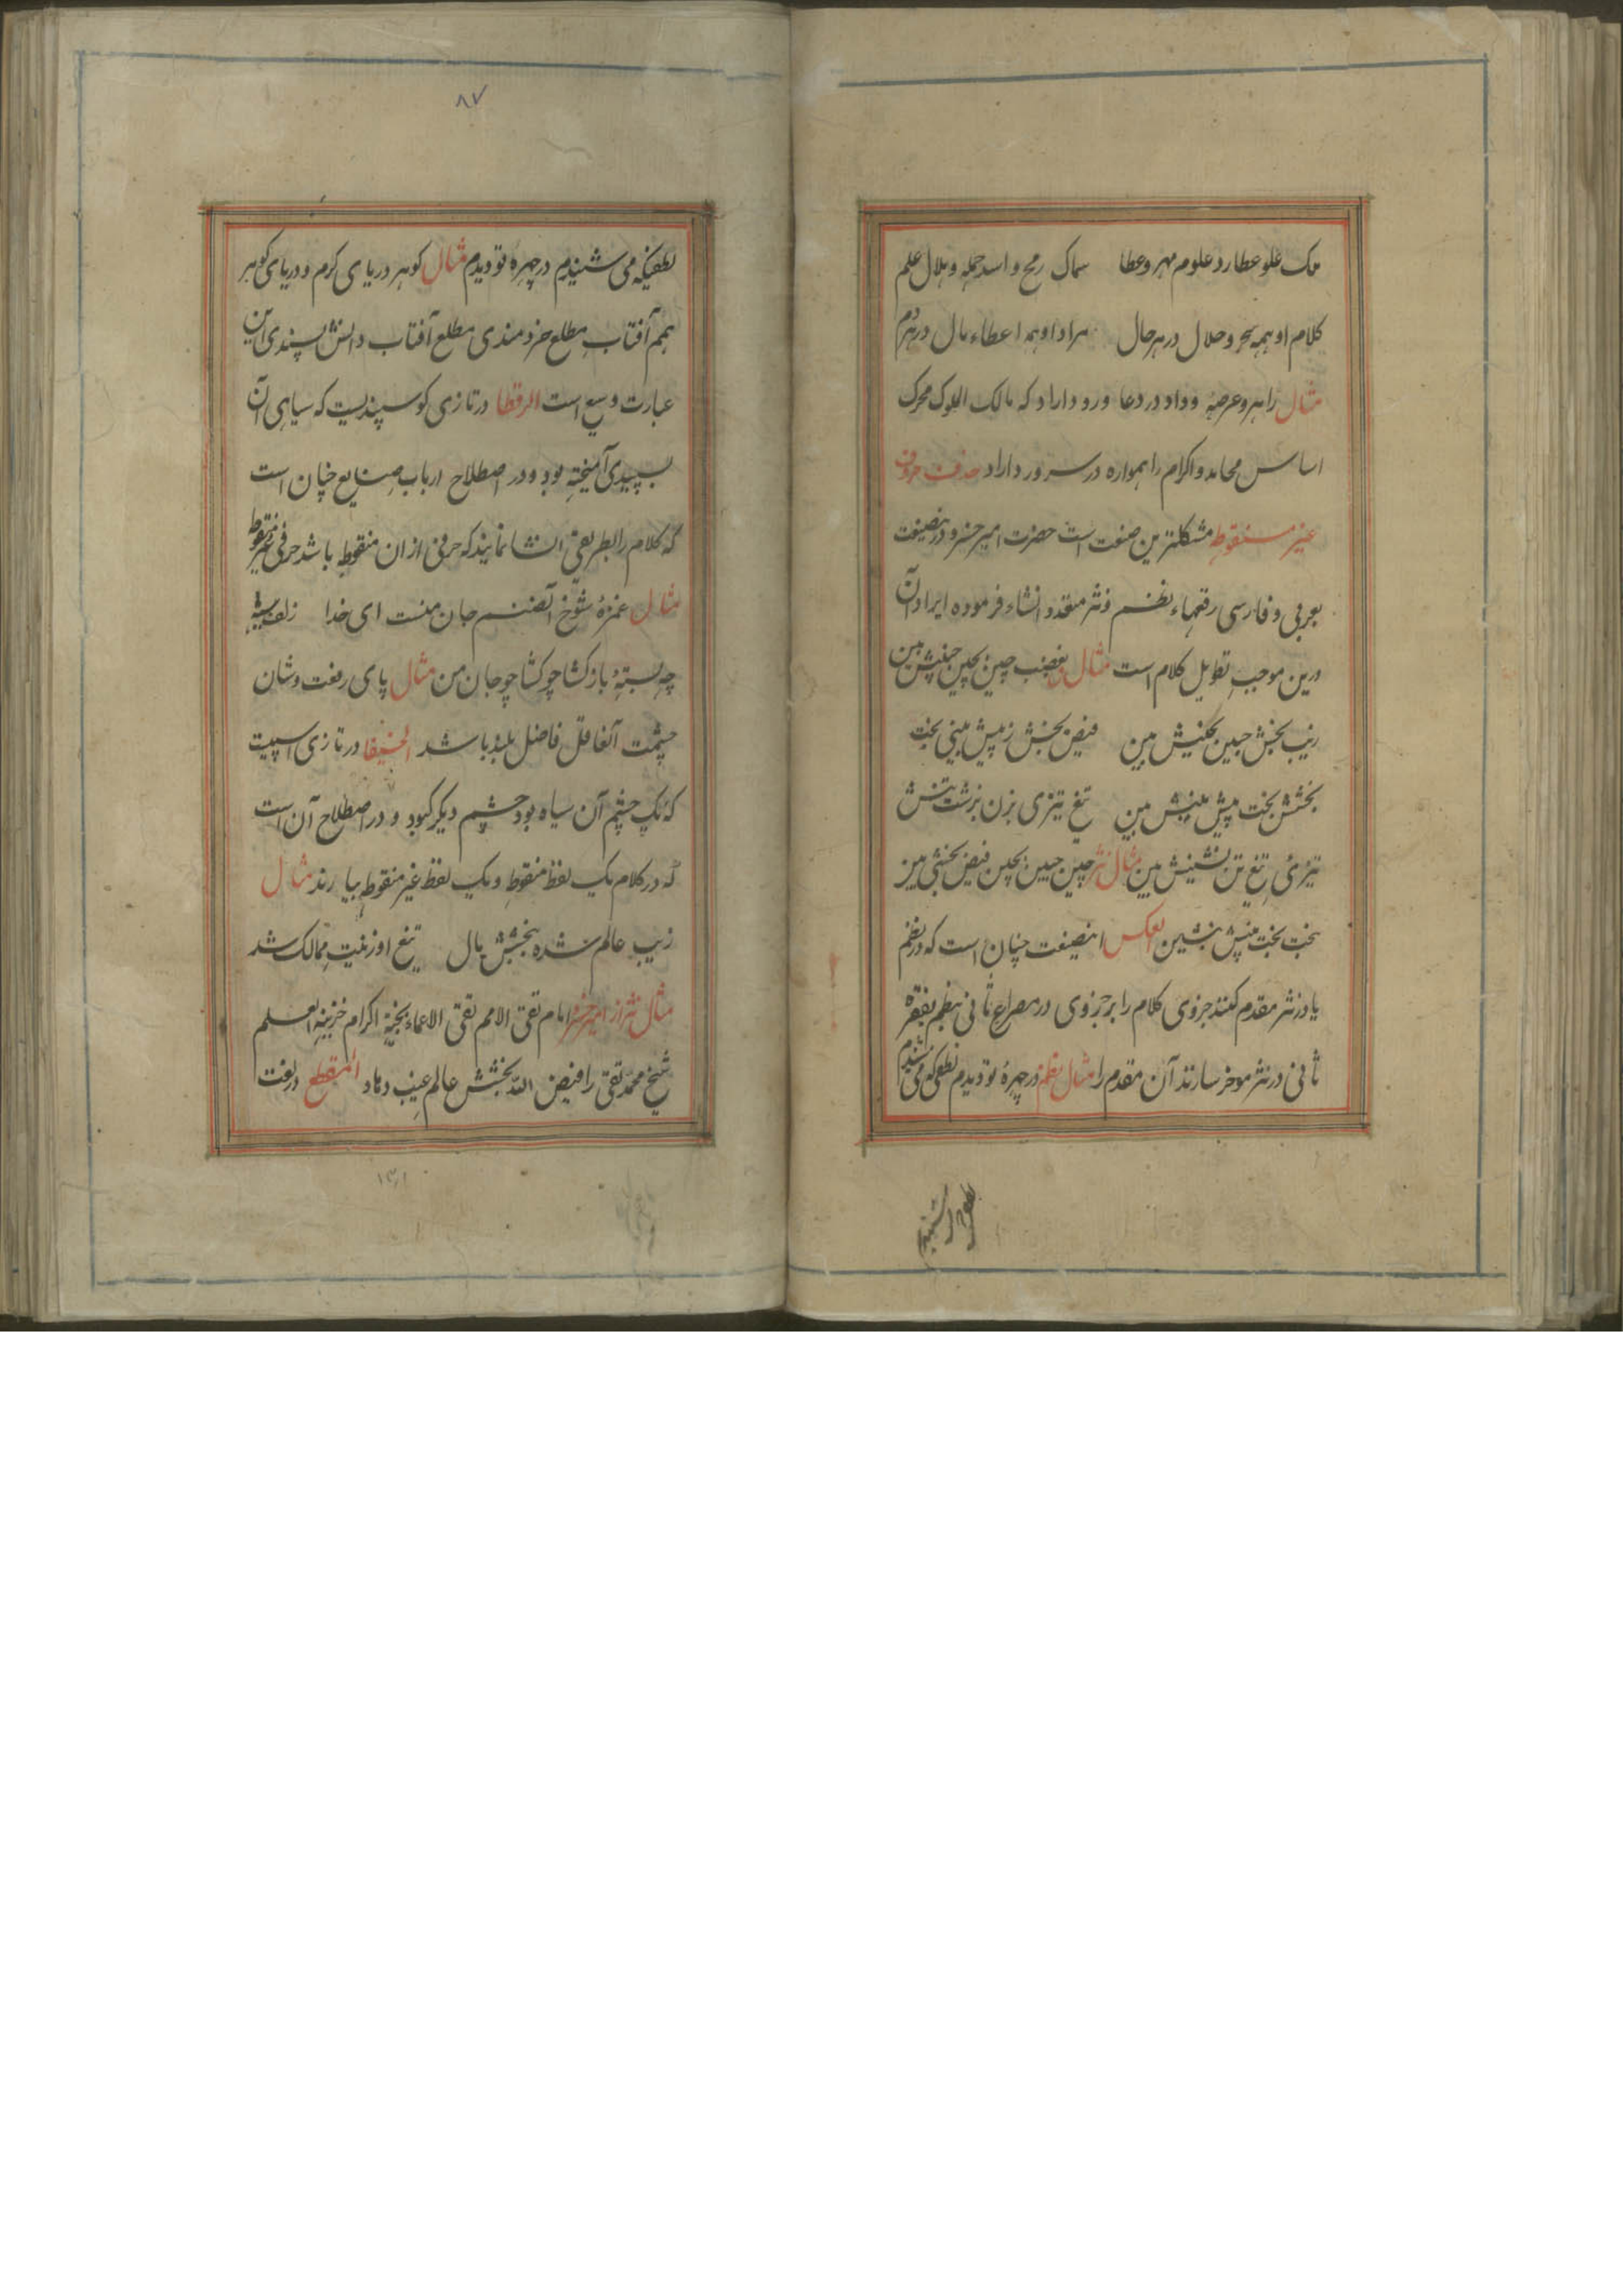 ملک علو عطارد علوم مهر و عطا سماک رمح و اسد حمله و هلال علم
کلام او همه سحر و حلال در هر حال مراد او همه اعطاء مال در هر دم
مثال را هر و عرصه وداد در دعا ورود داراد که مالک الملوک محرک
اساس محامد و اکرام را همواره در سرور داراد حذف حروف
غیر منقوطه مشکلترین صنعت است حضرت امیر خسرو درینصنعت
بعربی و فارسی رقمهاء نظم و نثر متعدد انشاء فرموده ایراد آن
درین موجب تطویل کلام است مثال بغضب چین بچین جبینش بین
زیب بخش جبین بجنبش بین فیض بخش ز پیش بینی بخت
بخشش بخت پیش بینش بین تیغ تیزی بزن بزشت تنش
تیزئ تیغ تن نشینش بین مثال نثر چین جبین بچین فیض بخشی بین
بخت بخت بینش بنشین العکس اینصنعت چنان است که در نظم
یا در نثر مقدم کنند جزوی کلام را بر جزوی در مصراع ثانی نظم بفقره
ثانی در نثر موخر سازند آن مقدم را مثال نظم در چهرهٔ تو دیدم لطفی که می شنیدم
۸۷
لطفیکه می شنیدم در چهرهٔ تو دیدم مثال کوهر دریای کرم و دریای کوهر
همم آفتاب مطلع خردمندی مطلع آفتاب دانش پسندی این
عبارت وسیع است الرقطا در تازی کوسپندیست که سیاهی آن
بسپیدی آمیخته بود و در اصطلاح ارباب صنایع چنان است
که کلام را بطریقی انشا نمایند که حرفی از ان منقوط باشد حرفی غیر منقوط
مثال غمزهٔ شوخ آنصنم جان منست ای خدا زلف سیه
چه بستهٔ باز کشا چو کشا چو جان من مثال پای رفعت و شان
حشمت آنعاقل فاضل بلند باشد الخیفا در تازی اسپیست
که یک چشم آن سیاه بود چشم دیگر کبود و در اصطلاح آن است
که در کلام یک لفظ منقوط و یک لفظ غیر منقوط بیارند مثال
زیب عالم شده بخشش مال تیغ او زینت ممالک شد
مثال نثر از امیر خسرو امام تقی الامم نقی الاعماء بخیة اکرام خزینة العلم
شیخ محمد تقی را فیض الله بخشش عالم غیب دهاد المنقطع در لغت
۱۳۱